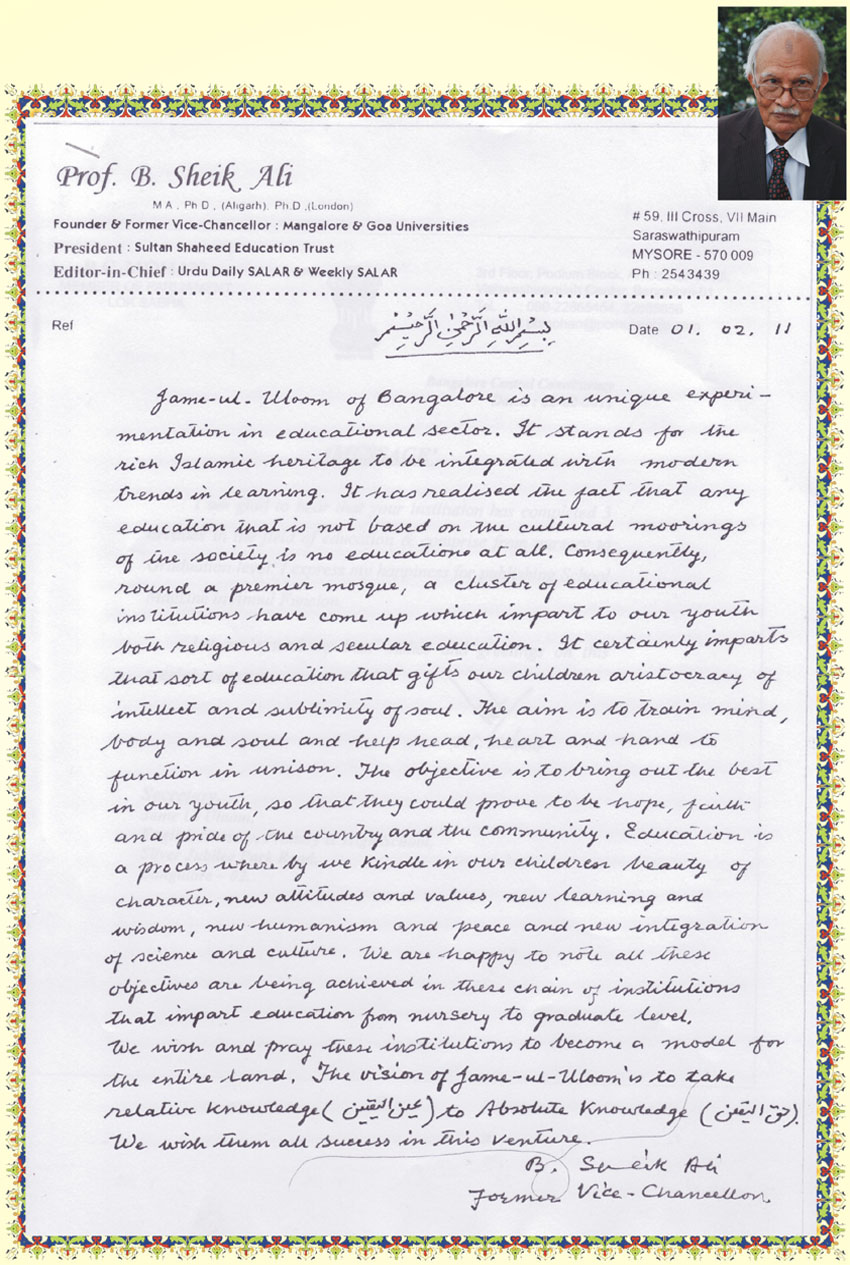 Prof. B. Sheik Ali
M.A., Ph.D., (Aligarh), Ph.D.,(London)
Founder & Former Vice-Chancellor : Mangalore & Goa Universities
President : Sultan Shaheed Education Trust
Editor-in-Chief : Urdu Daily SALAR & Weekly SALAR
# 59, III Cross, VII Main
Saraswathipuram
MYSORE - 570 009
Ph : 2543439
Ref
بِسْمِ اللهِ الرَّحْمٰنِ الرَّحِيْمِ
Date 01. 02. 11
Jame-ul-Uloom of Bangalore is an unique experi-
mentation in educational sector. It stands for the
rich Islamic heritage to be integrated with modern
trends in learning. It has realised the fact that any
education that is not based on the cultural moorings
of the society is no education at all. Consequently,
round a premier mosque, a cluster of educational
institutions have come up which impart to our youth
both religious and secular education. It certainly imparts
that sort of education that gifts our children aristocracy of
intellect and sublimity of soul. The aim is to train mind,
body and soul and help head, heart and hand to
function in unison. The objective is to bring out the best
in our youth, so that they could prove to be hope, faith
and pride of the country and the community. Education is
a process where by we kindle in our children beauty of
character, new attitudes and values, new learning and
wisdom, new humanism and peace and new integration
of science and culture. We are happy to note all these
objectives are being achieved in these chain of institutions
that impart education from nursery to graduate level.
We wish and pray these institutions to become a model for
the entire land. The vision of Jame-ul-Uloom is to take
relative knowledge (عین الیقین) to Absolute Knowledge (حق الیقین).
We wish them all success in this venture.
B. Sheik Ali
Former Vice-Chancellor